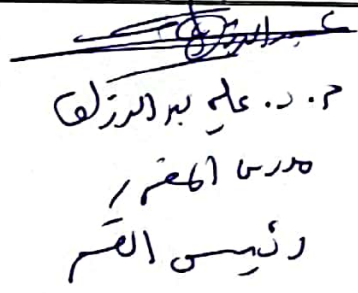 م. د. علي عبد الرزاق
مدرس المقرر /
رئيس القسم